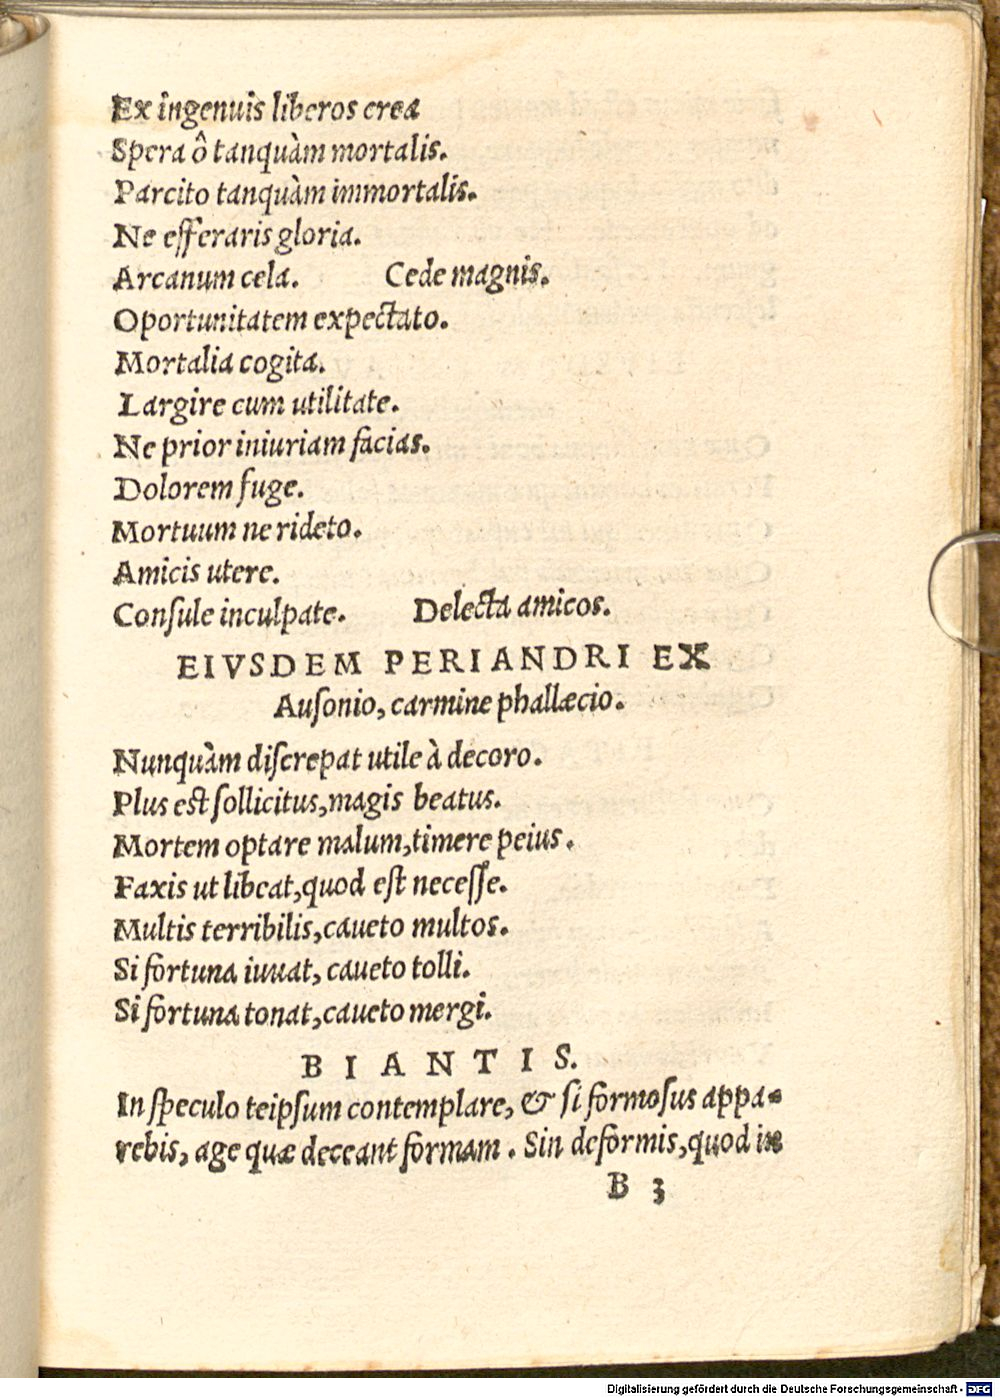 Ex ingenuis liberos crea
Spera ô tanquàm mortalis.
Parcito tanquàm immortalis.
Ne efferaris gloria.
Arcanum cela. Cede magnis.
Oportunitatem expectato.
Mortalia cogita.
Largire cum utilitate.
Ne prior iniuriam facias.
Dolorem fuge.
Mortuum ne rideto.
Amicis utere.
Conſule inculpate. Delecta amicos.
EIVSDEM PERIANDRI EX
Auſonio, carmine phallæcio.
Nunquàm diſcrepat utile à decoro.
Plus eſt ſollicitus, magis beatus.
Mortem optare malum, timere peius.
Faxis ut libeat, quod eſt neceſſe.
Multis terribilis, caueto multos.
Si fortuna iuuat, caueto tolli.
Si fortuna tonat, caueto mergi.
BIANTIS.
In ſpeculo teipſum contemplare, & ſi formoſus appa-
rebis, age quæ deceant formam. Sin deformis, quod in
B 3
Digitalisierung gefördert durch die Deutsche Forschungsgemeinschaft - DFG